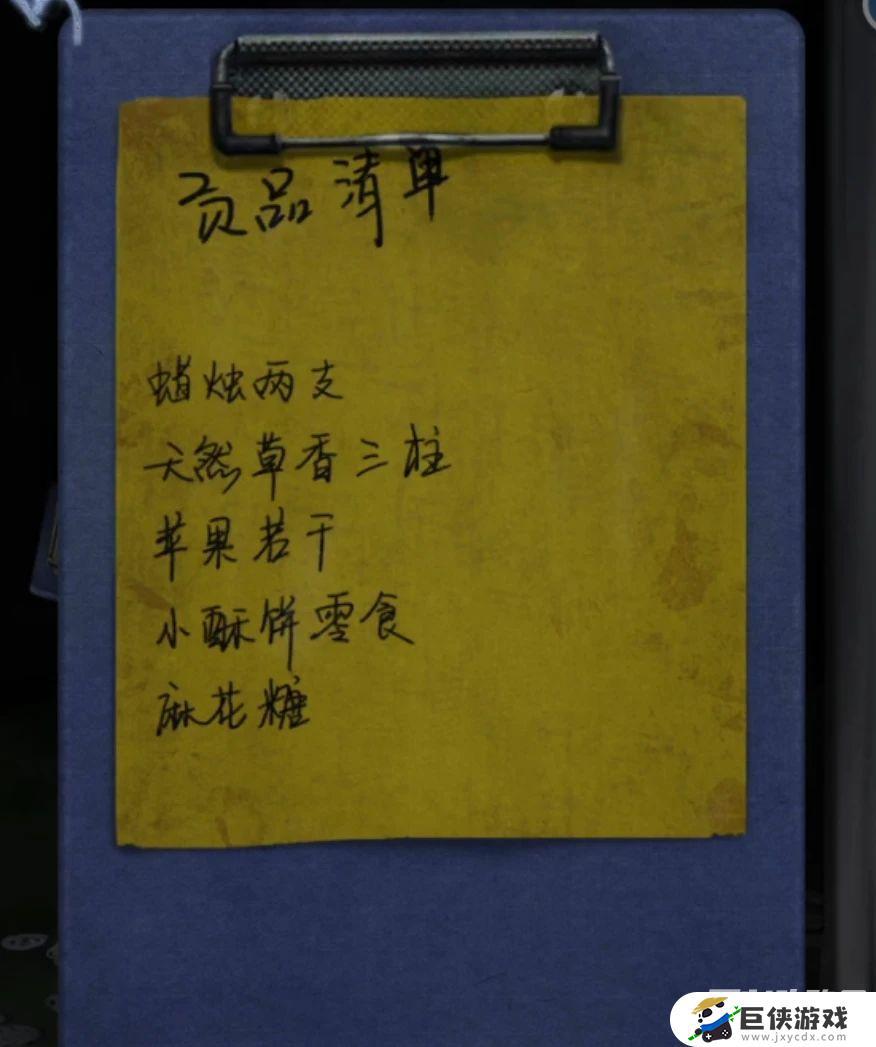 贡品清单
蜡烛两支
天然草香三柱
苹果若干
小酥饼零食
麻花糖
巨侠游戏
www.jxycdx.com